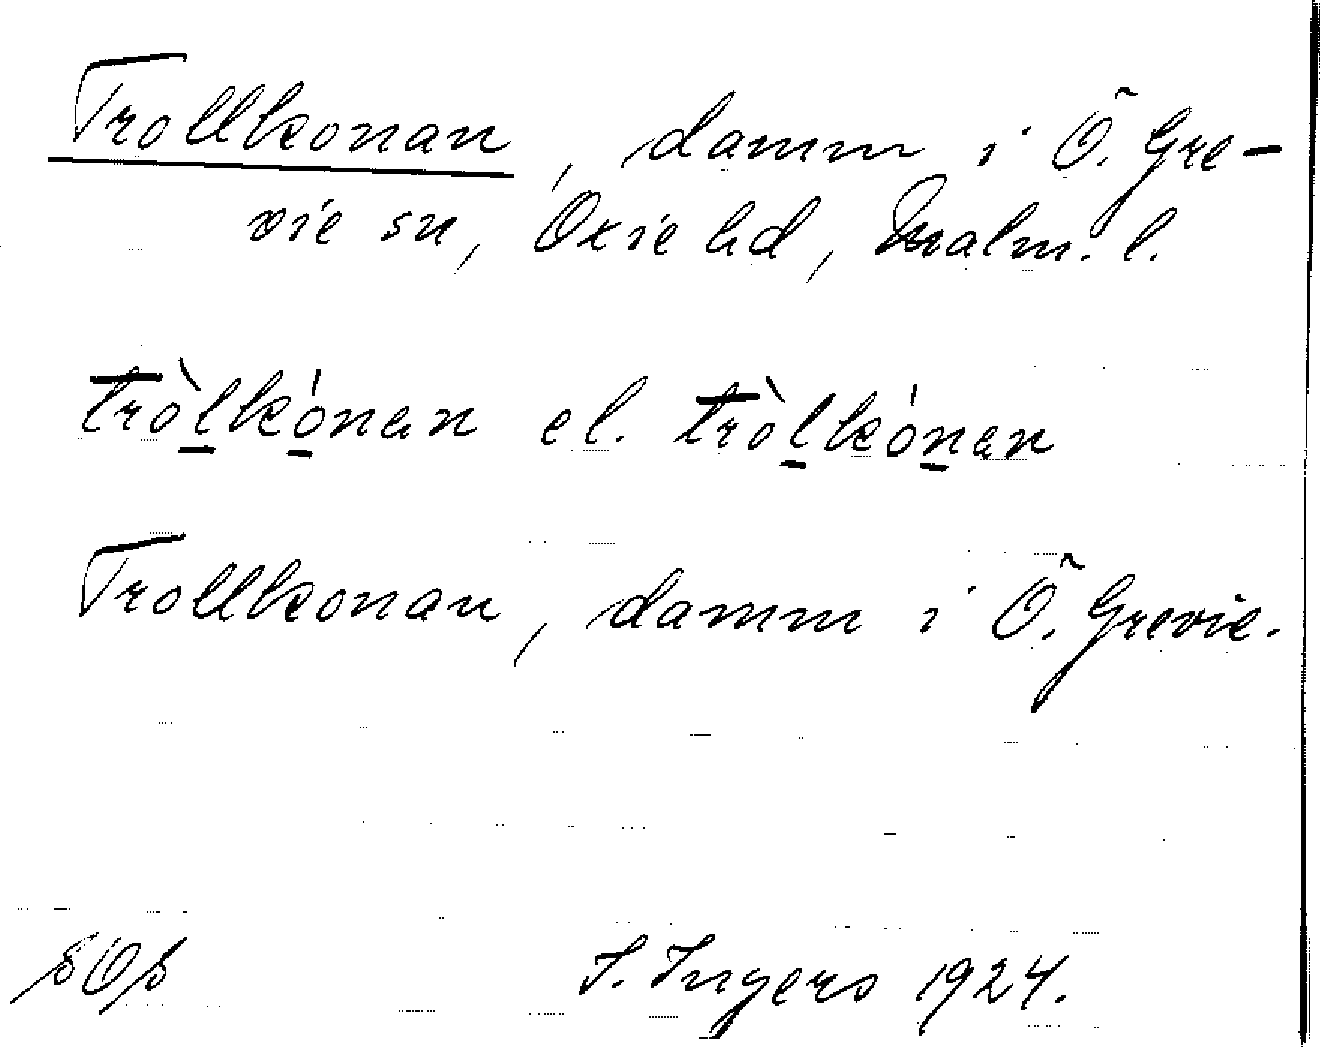 Trollkonan, damm i Ö. Gre-
vie sn, Oxie hd, Malm. l.
tròl̲kó̲nan el. tròl̲kón̲an
Trollkonan, damm i Ö. Grevie.
I. Ingers 1924.